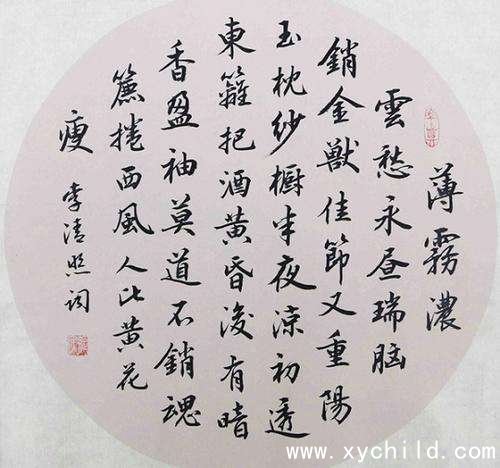 薄霧濃
雲愁永昼瑞脑
銷金獸佳節又重陽
玉枕纱橱半夜涼初透
東籬把酒黄昏後有暗
香盈袖莫道不銷魂
簾捲西風人比黄花
瘦
李清照词
www.xychild.com